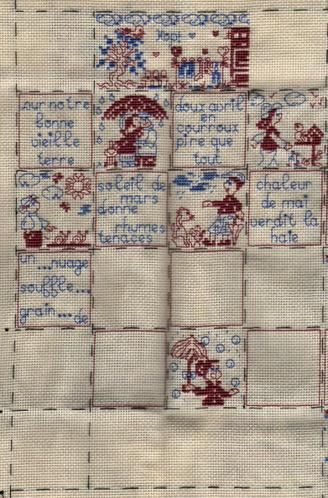 sur notre
bonne
vieille
terre
doux avril
en
courroux
pire que
tout
soleil de
mars
donne
rhumes
tenaces
chaleur
de mai
verdit la
haie
un...nuage
souffle...
grain...de